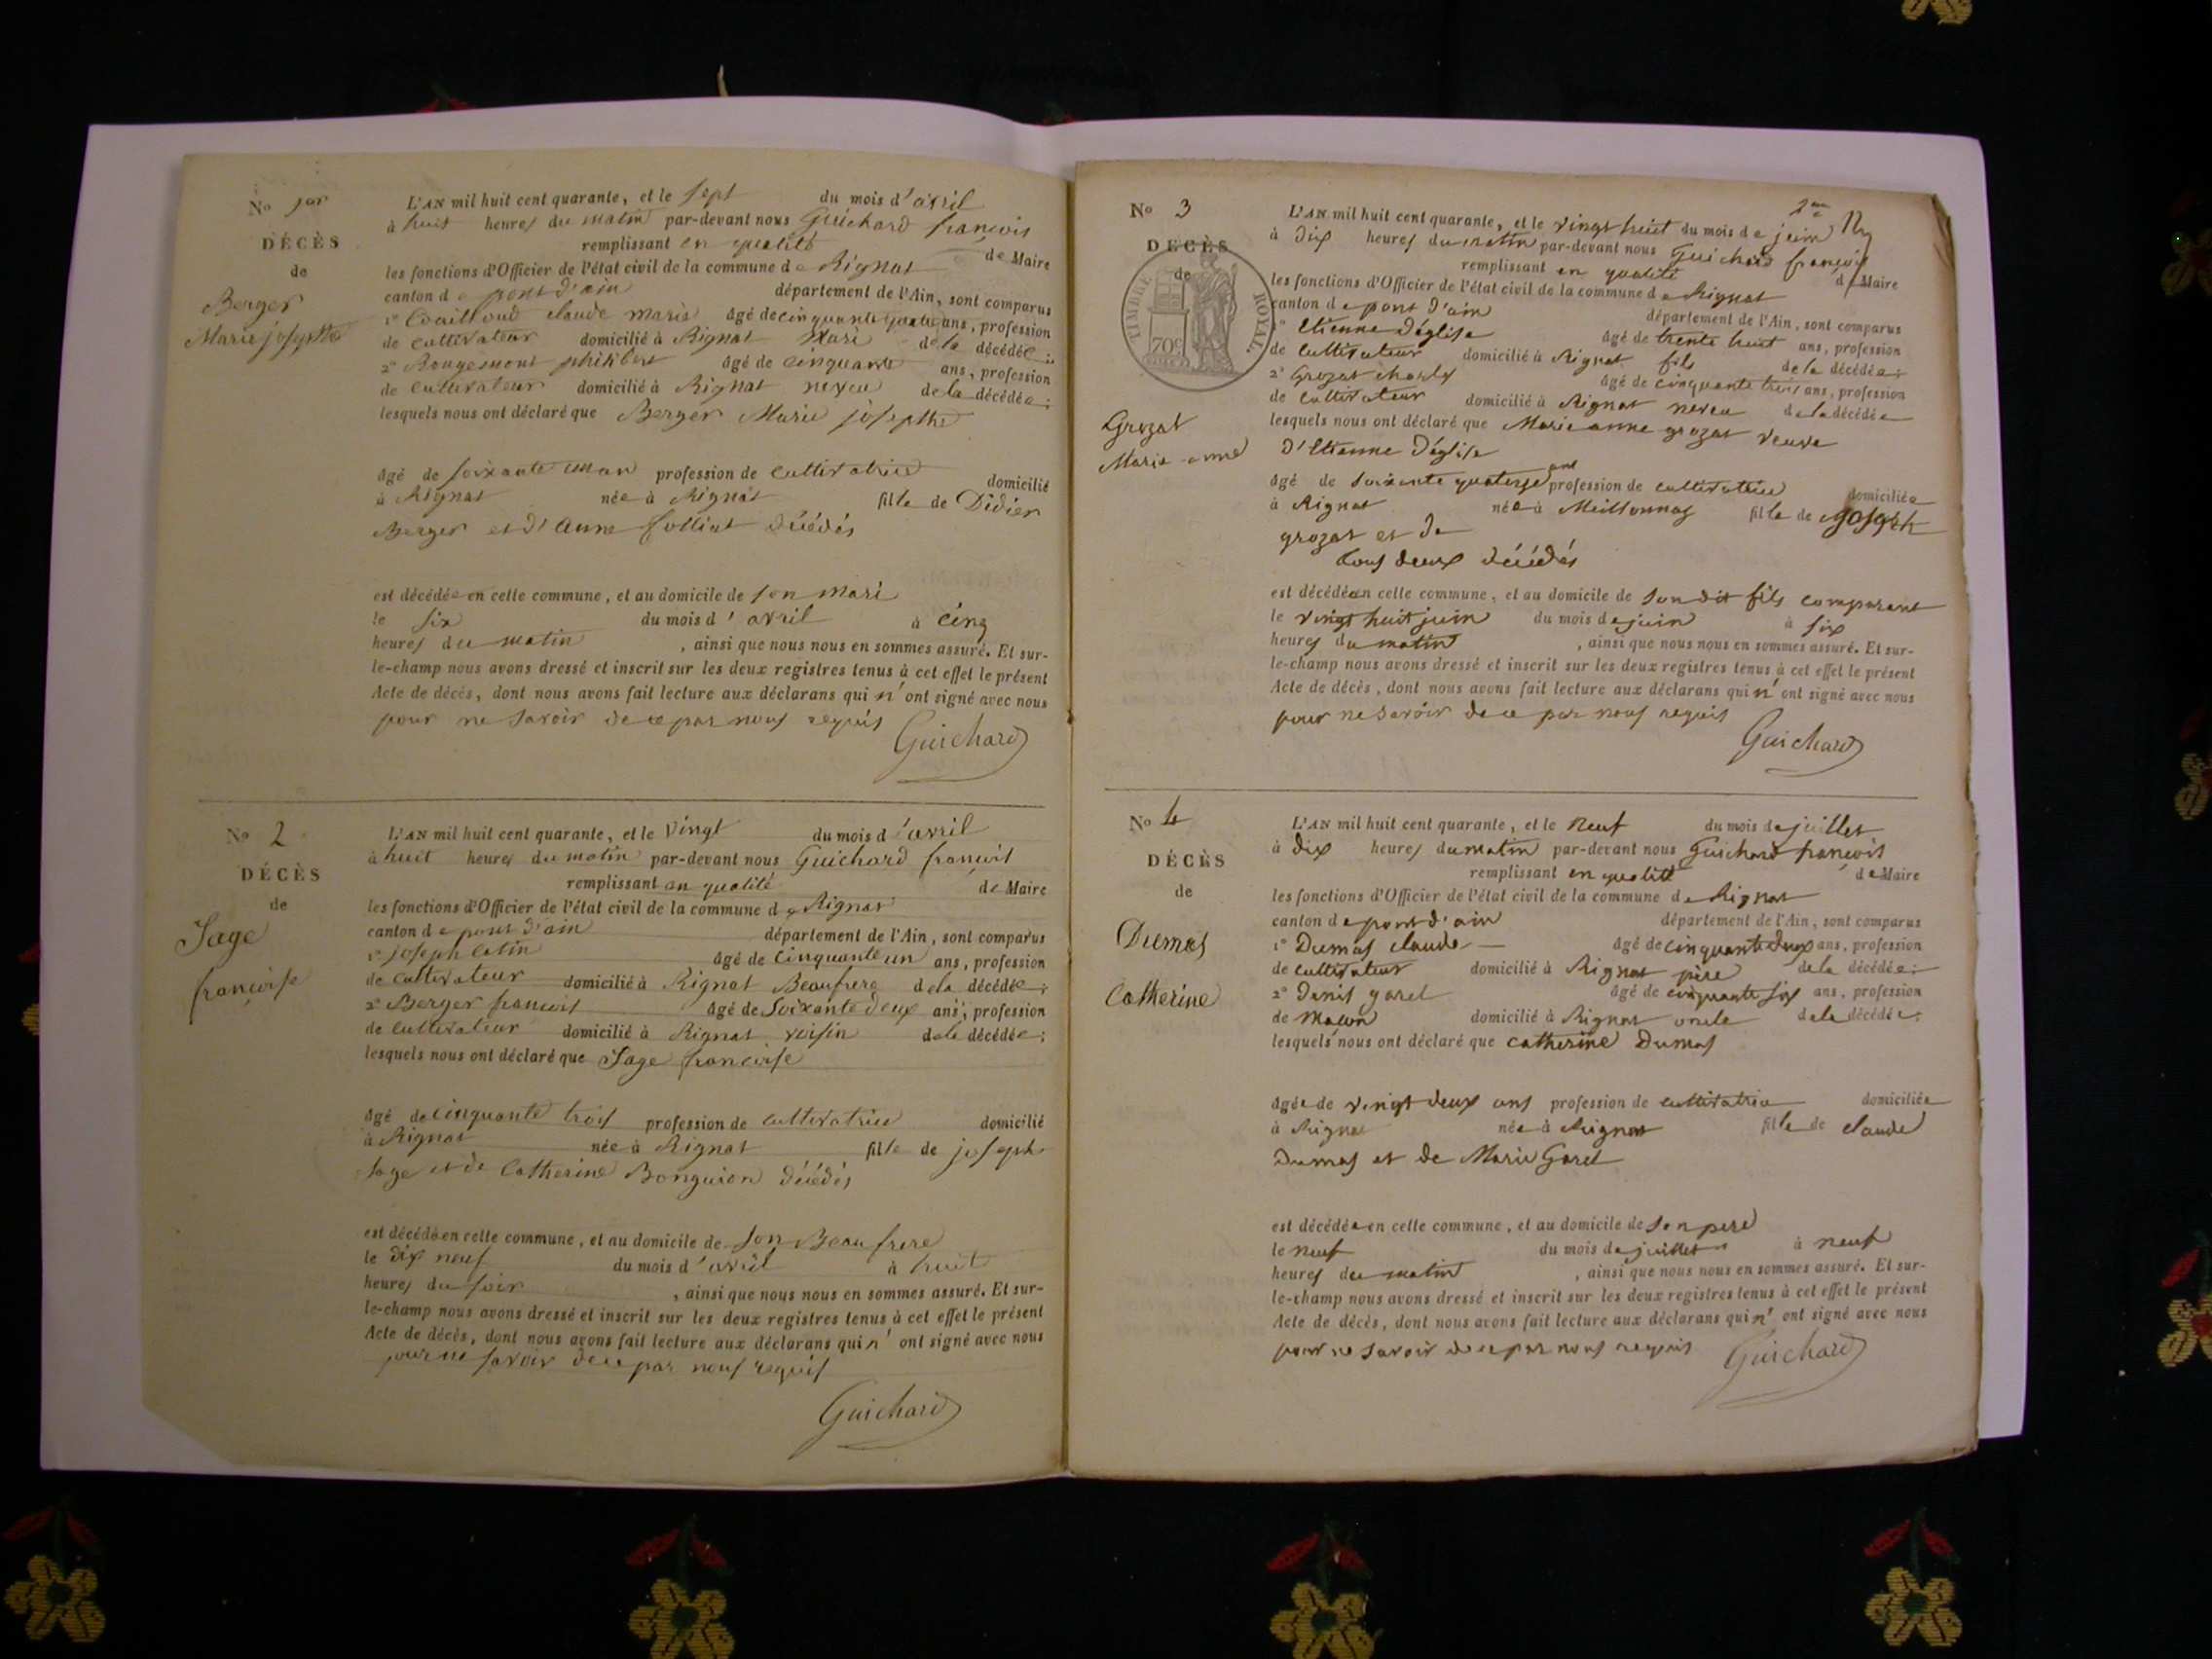 No 1er
DÉCÈS
de
Berger
Marie josephte
L'AN mil huit cent quarante, et le sept du mois d'avril
à huit heures du matin par-devant nous Guichard françois
remplissant en qualité de Maire
les fonctions d'Officier de l'état civil de la commune de Rignat
canton de pont d'ain département de l'Ain, sont comparus
1° claude marie âgé de cinquante quatre ans, profession
de cultivateur domicilié à Rignat Mari de la décédée;
2° Rougemont philibert âgé de cinquante ans, profession
de cultivateur domicilié à Rignat neveu de la décédée;
lesquels nous ont déclaré que Berger Marie josepthe
âgé de soixante un an profession de cultivatrice domicilié
à Rignat née à Rignat fille de Didier
Berger et d'anne folliat décédés
est décédée en cette commune, et au domicile de son mari
le six du mois d'avril à cinq
heures du matin, ainsi que nous nous en sommes assuré. Et sur-
le-champ nous avons dressé et inscrit sur les deux registres tenus à cet effet le présent
Acte de décès, dont nous avons fait lecture aux déclarans qui n'ont signé avec nous
pour ne savoir de ce par nous requis
Guichard
No 2
DÉCÈS
de
Sage
françoise
L'AN mil huit cent quarante, et le vingt du mois d'avril
à huit heures du matin par-devant nous Guichard françois
remplissant en qualité de Maire
les fonctions d'Officier de l'état civil de la commune de Rignat
canton de pont d'ain département de l'Ain, sont comparus
1° joseph Catin âgé de cinquante un ans, profession
de cultivateur domicilié à Rignat Beaufrere de la décédée;
2° Berger francois âgé de Soixante deux ans, profession
de cultivateur domicilié à Rignat voisin de la décédée;
lesquels nous ont déclaré que Sage francoise
âgé de cinquante trois profession de cultivatrice domicilié
à Rignat née à Rignat fille de joseph
Sage et de Catherine décédés
est décédé en cette commune, et au domicile de son Beau frere
le dix neuf du mois d'avril à huit
heures du soir, ainsi que nous nous en sommes assuré. Et sur-
le-champ nous avons dressé et inscrit sur les deux registres tenus à cet effet le présent
Acte de décès, dont nous avons fait lecture aux déclarans qui n'ont signé avec nous
pour ne savoir de ce par nous requis
Guichard
2me
No 3
DÉCÈS
de
TIMBRE ROYAL
70c
Grozat
Marie-anne
L'AN mil huit cent quarante, et le vingt huit du mois de juin
à dix heures du matin par-devant nous Guichard françois
remplissant en qualité de Maire
les fonctions d'Officier de l'état civil de la commune de Rignat
canton de pont d'ain département de l'Ain, sont comparus
1° Etienne Déglise âgé de trente huit ans, profession
de cultivateur domicilié à Rignat fils de la décédée;
2° Grozat charles âgé de cinquante trois ans, profession
de cultivateur domicilié à Rignat neveu de la décédée
lesquels nous ont déclaré que Marie anne grozat veuve
D'Etienne Déglise
âgé de soixante quatorze ans profession de cultivatrice domiciliée
à Rignat née à Meillonnas fille de Joseph
grozat et de
tous deux décédés
est décédée en cette commune, et au domicile de son dit fils comparant
le vingt huit juin du mois de juin à six
heures du matin, ainsi que nous nous en sommes assuré. Et sur-
le-champ nous avons dressé et inscrit sur les deux registres tenus à cet effet le présent
Acte de décès, dont nous avons fait lecture aux déclarans qui n'ont signé avec nous
pour ne savoir de ce par nous requis
Guichard
No 4
DÉCÈS
de
Dumas
Catherine
L'AN mil huit cent quarante, et le neuf du mois de juillet
à dix heures du matin par-devant nous Guichard françois
remplissant en qualité de Maire
les fonctions d'Officier de l'état civil de la commune de Rignat
canton de pont d'ain département de l'Ain, sont comparus
1° Dumas claude âgé de cinquante deux ans, profession
de cultivateur domicilié à Rignat père de la décédée;
2° Denis garel âgé de cinquante six ans, profession
de maçon domicilié à Rignat oncle de la décédée;
lesquels nous ont déclaré que catherine Dumas
âgée de vingt deux ans profession de cultivatrice domiciliée
à Rignat née à Rignat fille de claude
Dumas et de Marie Garel
est décédée en cette commune, et au domicile de son pere
le neuf du mois de juillet à neuf
heures du matin, ainsi que nous nous en sommes assuré. Et sur-
le-champ nous avons dressé et inscrit sur les deux registres tenus à cet effet le présent
Acte de décès, dont nous avons fait lecture aux déclarans qui n'ont signé avec nous
pour ne savoir de ce par nous requis
Guichard